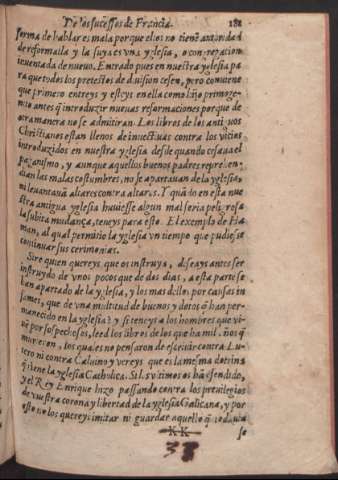 De los sucessos de Francia. 181
forma de hablar es mala porque ellos no tienē autoridad
de reformalla y la suya es una yglesia, o congregacion
inuentada de nueuo. Entrado pues en nuestra yglesia pa
ra que todos los pretextos de diuision cesen, pero conuiene
que primero entreys y esteys en ella como hijo primoge-
nito antes q̄ introduzir nueuas reformaciones porque de
otra manera no se admitiran. Los libros de los antiguos
Christianos estan llenos de inuectiuas contra los vicios
introduzidos en nuestra yglesia desde quando cesaua el
paganismo, y aunque aquellos buenos padres reprehen-
dian las malas costumbres, no se apartauan de la yglesia
ni leuantauā altares contra altares. Y quādo en esta nue
stra antigua yglesia huuiesse algun mal seria peligrosa
la subita mudança, teneys para esto. El exemplo de Ha
man, al qual permitio la yglesia un tiempo que pudiesse
continuar sus cerimonias.
Sire quien quereys que os instruya, deseays antes ser
instruydo de unos pocos que de dos dias, a esta parte se
han apartado de la yglesia, y los mas dellos por causas in
fames, que de una multitud de buenos y dotos q̄ han per-
manecido en la yglesia? y si teneys a los hombres que vi-
uē por sospechosos, leed los libros de los que ha mil años q̄
murieron, los quales no pensaron de escriuir contra Lu-
tero ni contra Caluino y vereys que es la mesma dotrina
q̄ tiene la yglesia Catholica. Si los ultimos os hā ofendido,
y el Rey Enrique hizo passando contra los preuilegios
de vuestra corona y libertad de la yglesia Galicana, y por
esto no los quereys imitar ni guardar aquello q̄ todauia
KK se
38